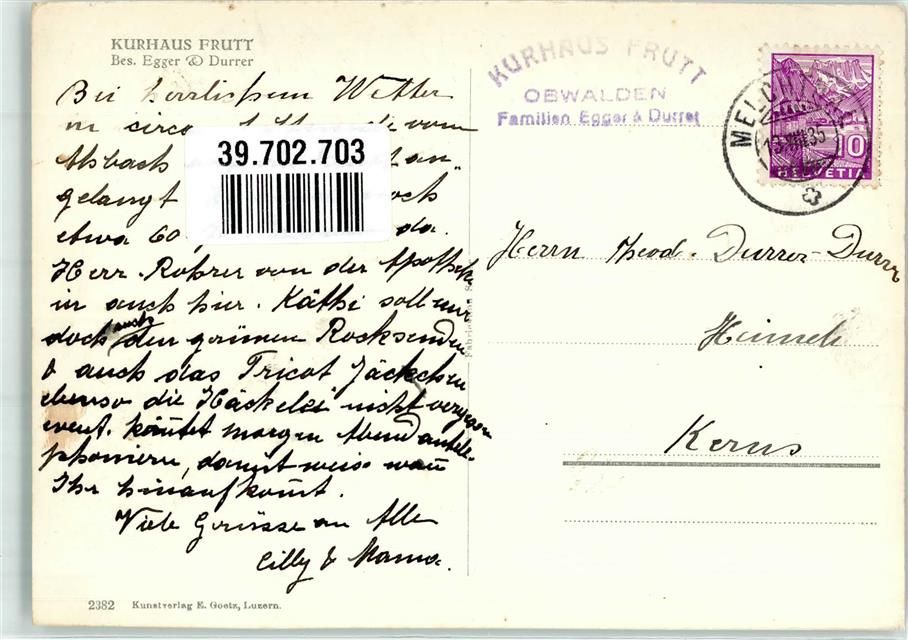 KURHAUS FRUTT
Bes. Egger & Durrer
Bei herrlichem Wetter
in circa vom
Alsbach an
gelangt
etwa 60 da.
Herr Rohrer von der Apotheke
in auch hier. Käthi soll mir
doch auch den grünen Rock senden
& auch das Tricot Jäckchen
ebenso die Häckelei nicht vergessen
event. könntet morgen Abend antele-
phonieren, damit weiss wann
Ihr hinaufkomt.
Viele Grüsse an Alle
Cilly & Mama.
39.702.703
2382 Kunstverlag E. Goetz, Luzern.
KURHAUS FRUTT
OBWALDEN
Familien Egger & Durrer
13.VIII.35
10
HELVETIA
Herrn Theod. Durrer-Durrer
Kerns